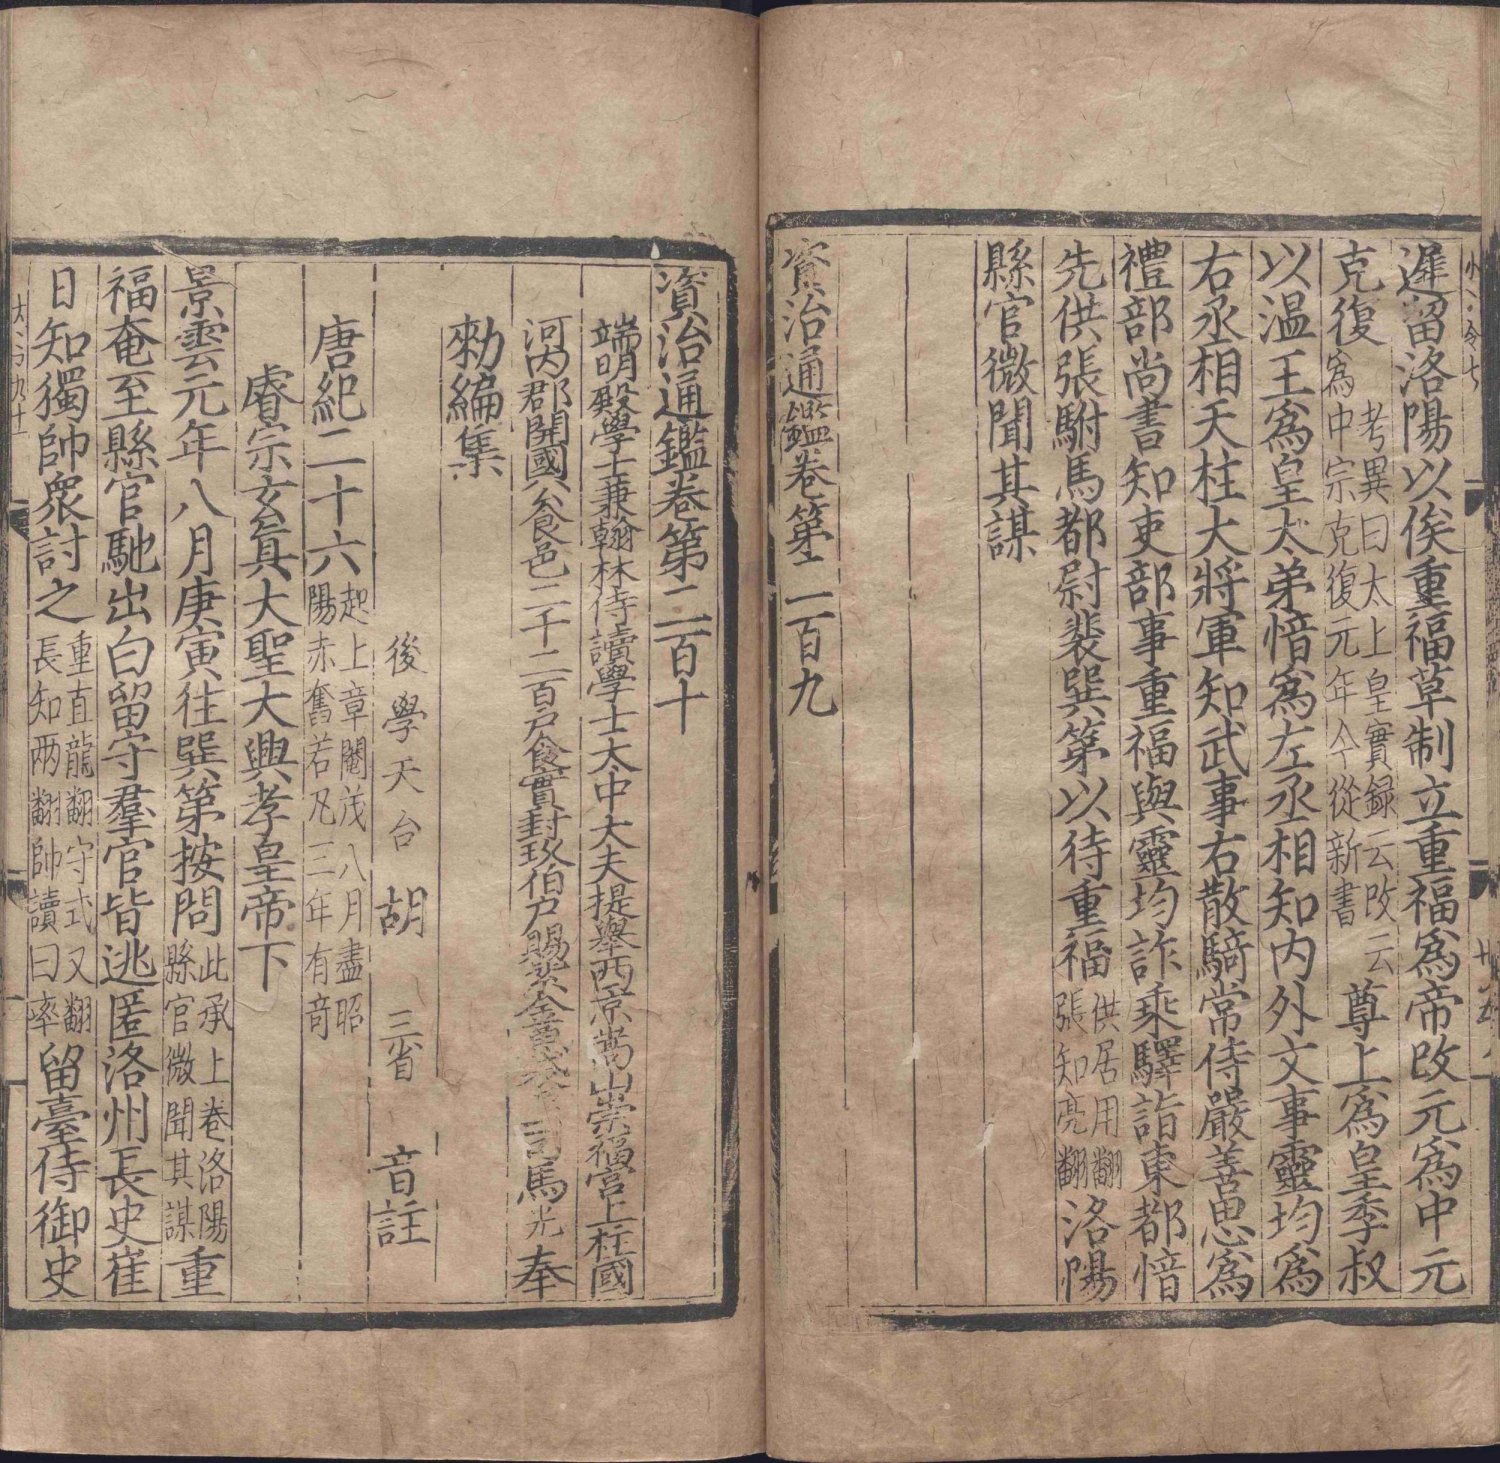 遲留洛陽以俟重福草制立重福爲帝改元爲中元
克復考異曰太上皇實録云改云爲中宗克復元年今從新書尊上爲皇季叔
以温王爲皇太弟愔爲左丞相知内外文事靈均爲
右丞相天柱大將軍知武事右散騎常侍嚴善思爲
禮部尚書知吏部事重福與靈均詐乘驛詣東都愔
先供張駙馬都尉裴巽第以待重福供居用翻張知亮翻洛陽
縣官微聞其謀
資治通鑑卷第二百九
資治通鑑卷第二百十
端明殿學士兼翰林侍讀學士太中大夫提舉西京嵩山崇福宫上柱國
河内郡開國公食邑二千二百户食實封玖伯户賜紫金魚袋臣司馬光奉
勑編集
後學天台胡三省音註
唐紀二十六起上章閹茂八月盡昭陽赤奮若凡三年有奇
睿宗玄眞大聖大興孝皇帝下
景雲元年八月庚寅往巽第按問此承上卷洛陽縣官微聞其謀重
福奄至縣官馳出白留守羣官皆逃匿洛州長史崔
日知獨帥衆討之重直龍翻守式又翻長知两翻帥讀曰率留臺侍御史